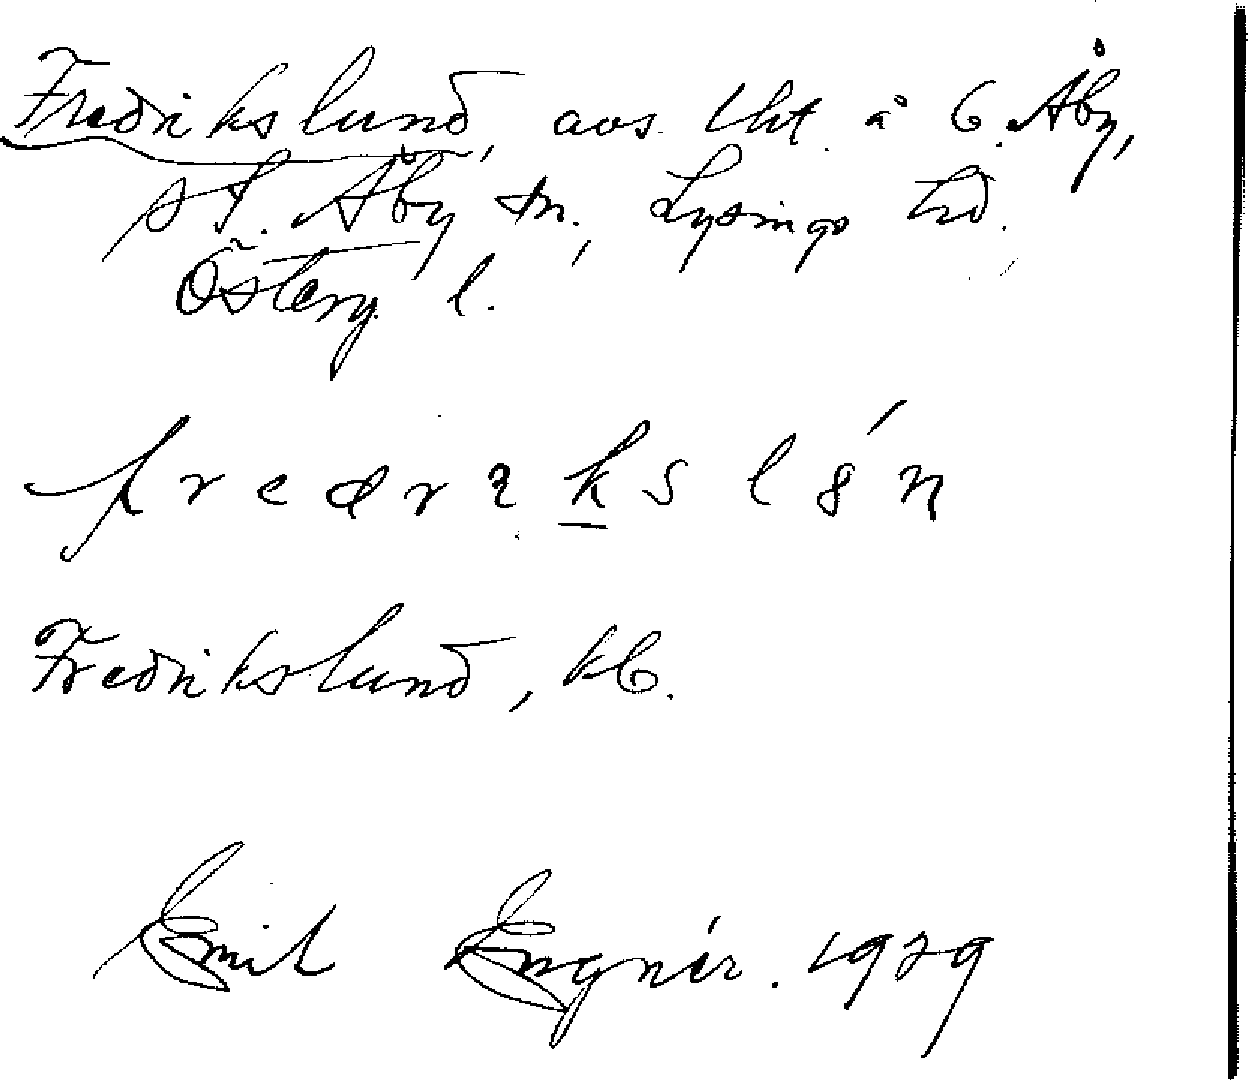 Fredrikslund, avs. lht. å G. Åby,
st. Åby sn., Lysings hd.
Österg. l.
fredrıkslén
Fredrikslund, kb.
Emil Engnér. 1929